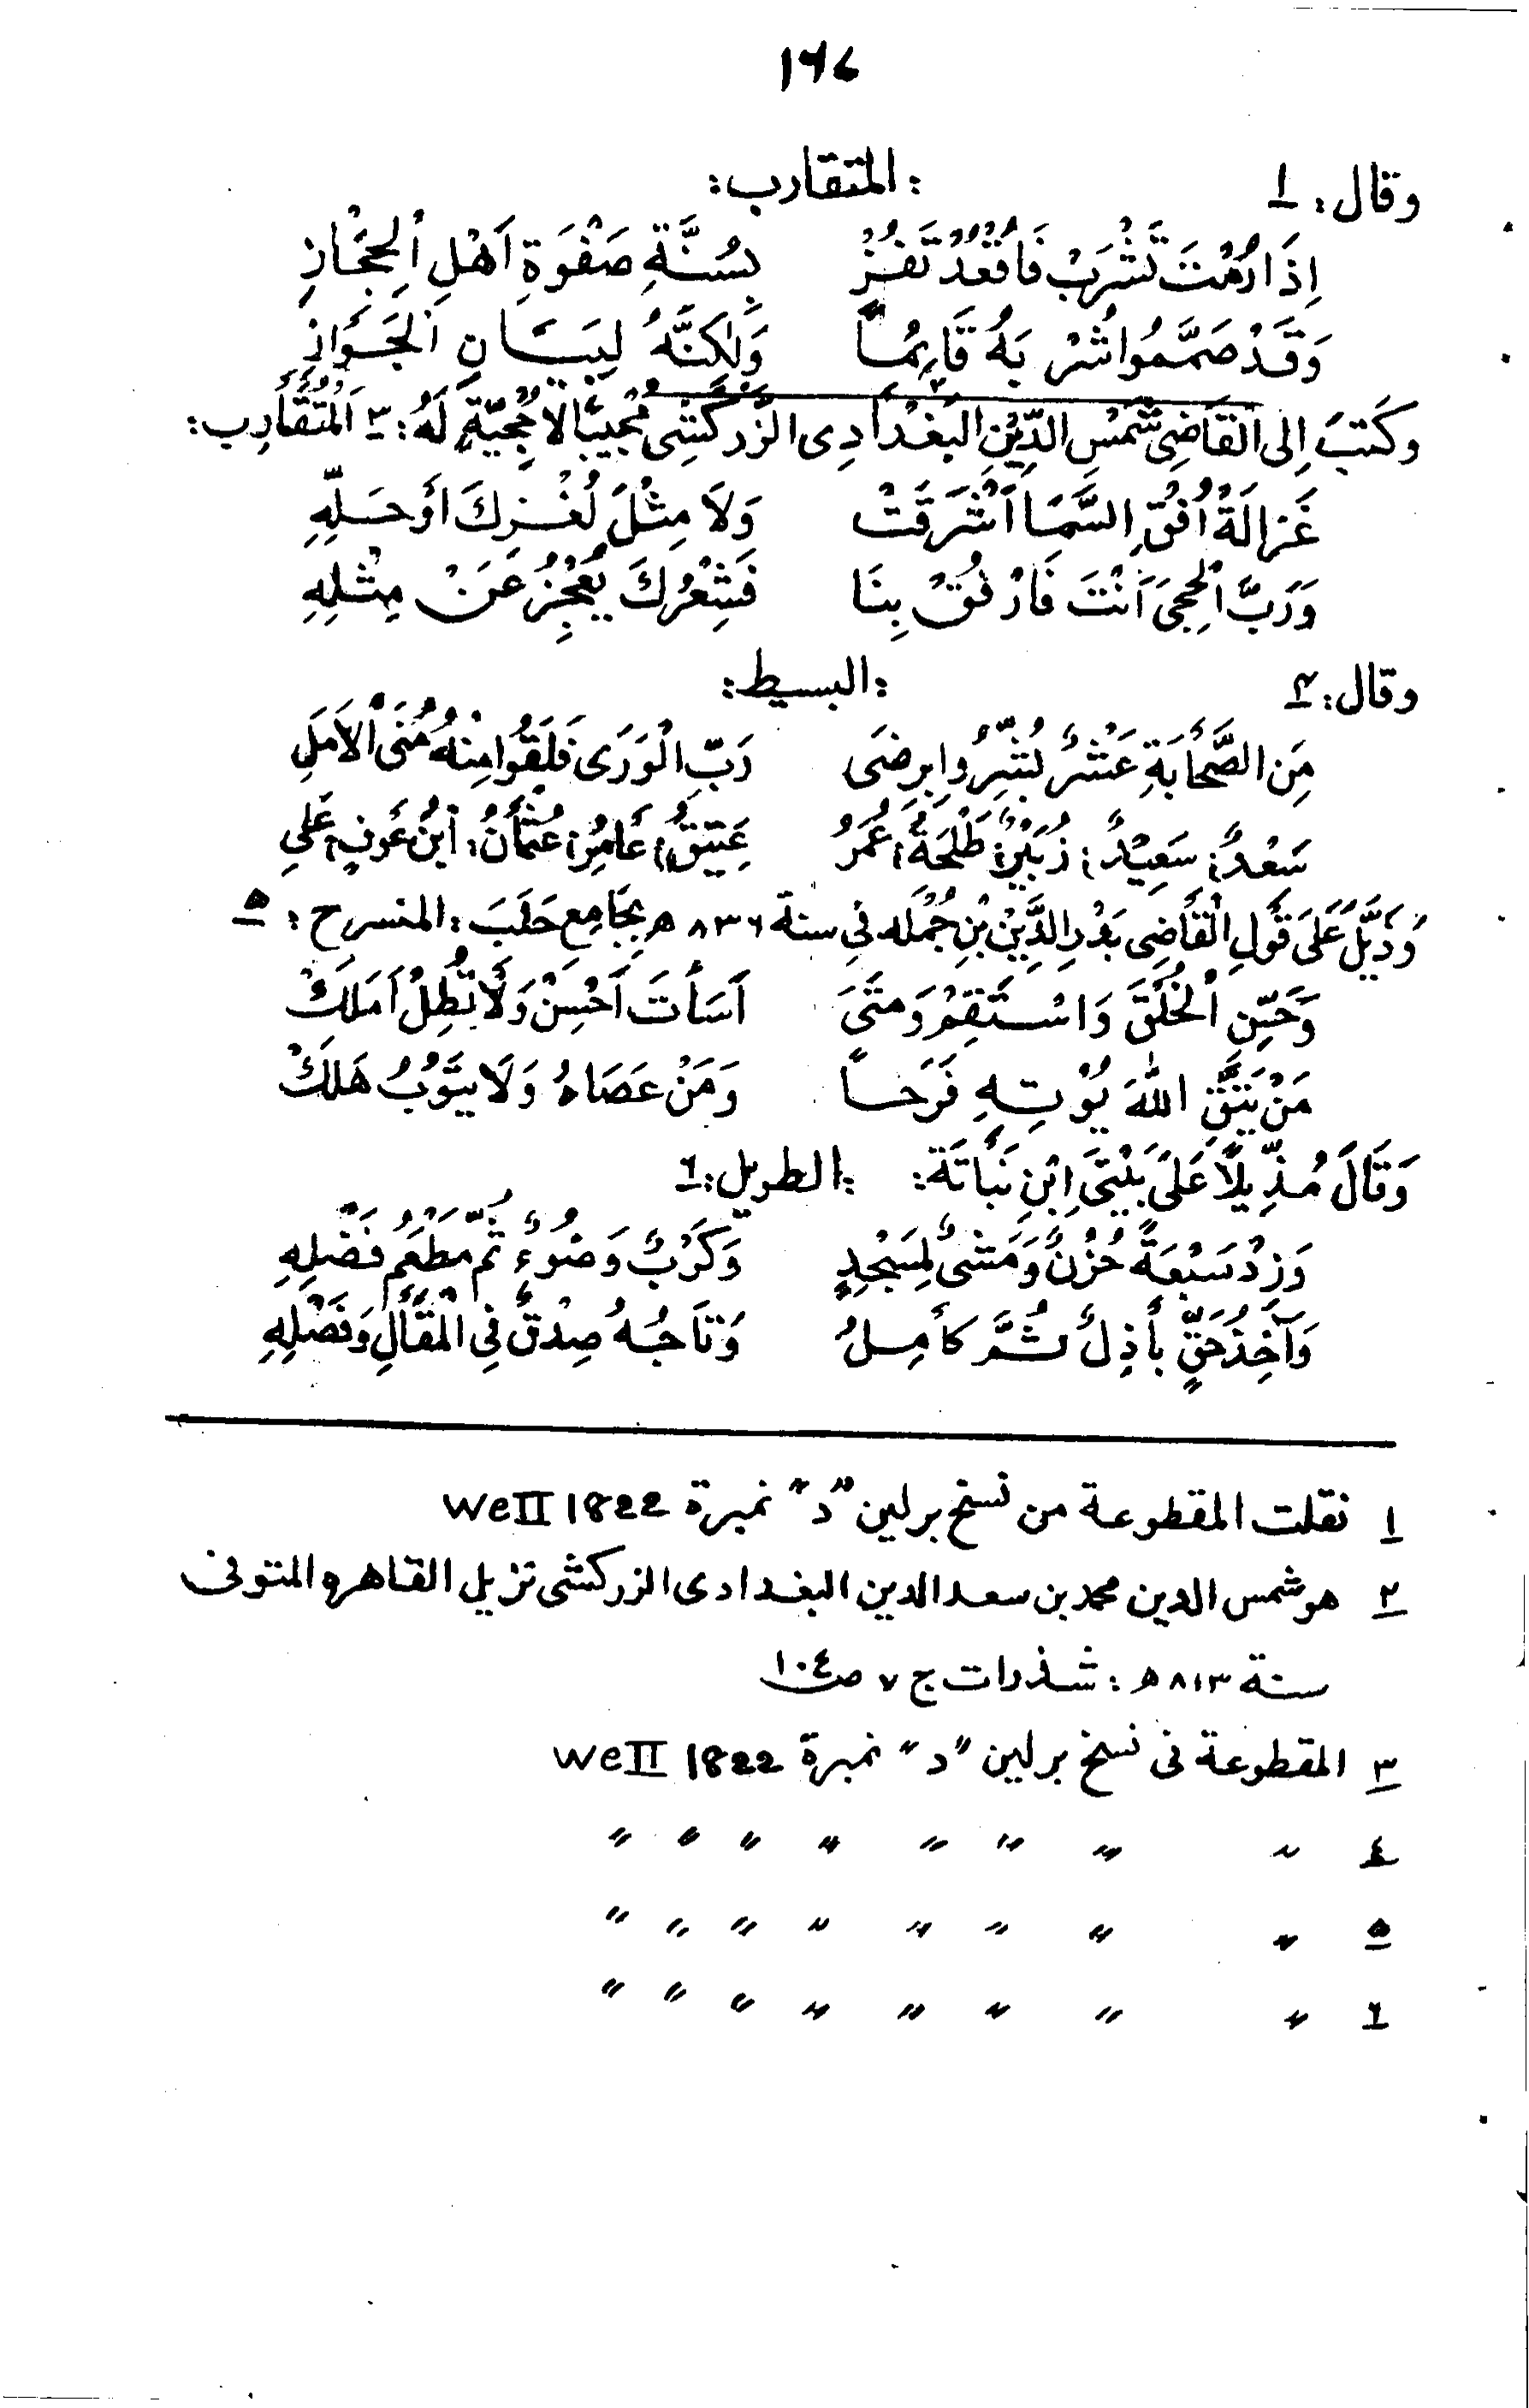 ١٩٤
وقال: ١ :المتقارب:
اِذَا رُمْتَ تَشْرَبْ فَاقْعُدْ تَفُزْ بِسُنَّةِ صَفْوَةِ اَهْلِ الْحِجَازِ
وَقَدْ صَحَّمُوا شُرْبَهُ قَائِمًا وَلٰكِنَّهُ لِبَيَانِ الْجَوَازِ
وَكَتَبَ اِلى القَاضِى شَمْسِ الدِّيْنِ البَغْدَادِى الزَّرْكَشِى ٢ مُجِيْبًا لِاُحْجِيَّةٍ لَهُ: ٣ اَلْمُتَقَارِب:
غَزَالَةُ اُفْقِ السَّمَا اَشْرَقَتْ وَلَا مِثْلَ لُغْزِكَ اَوْ حَلِّهِ
وَرَبَّ الْحِجَى اَنْتَ فَارْفُقْ بِنَا فَشِعْرُكَ يُعْجِزُ عَنْ مِثْلِهِ
وقال: ٤ :البسيط:
مِنَ الصَّحَابَةِ عَشْرٌ بُشِّرُوا بِرِضَى رَبِّ الْوَرَى فَلَقُوا مِنْهُ مُنَى الْاَمَلِ
سَعْدٌ؛ سَعِيْدٌ؛ زُبَيْرٌ؛ طَلْحَةٌ؛ عُمَرُ عَتِيْقٌ؛ عَامِرٌ؛ عُثْمَانُ؛ اِبْنُ عَوفٍ؛ عَلِي
وَذَيَّلَ عَلَى قَولِ الْقَاضِى بَدْرِ الدِّيْنِ بْنِ جُمْلَه في سنة ٨٣٦ ھ بِجَامِعِ حَلَبَ: المنسرح: ٥
وَحَسِّنِ الْخُلْقَ وَاسْتَقِمْ وَمَتَى اَسَأْتَ اَحْسِنْ وَلَا تُطِلْ اَمَلَكْ
مَنْ يَتَّقِ اللهَ يُوْتِهِ فَرَحاً وَمَنْ عَصَاهُ وَلَا يَتُوْبُ هَلَكْ
وَقَالَ مُذَيِّلًا عَلَى بَيْتَى ابْنِ نَبَاتَة: :الطويل: ٦
وَزِدْ سَبْعَةً حُزْنٌ وَمَشْىٌ لِمَسْجِدٍ وَكَرْبٌ وَضُوْءٌ ثُمَّ مُطْعِمُ فَضْلِهِ
وَآخِذُ حَقٍّ بَاذِلٌ ثُمَّ كَامِلٌ وَتَاجِرُهُ صِدْقٌ فِى الْمَقَالِ وَفَضْلِهِ
١ نقلت المقطوعة من نسخ برلين "د" نمبرة WeII 1822
٢ هو شمس الدين محمد بن سعد الدين البغدادى الزركشى نزيل القاهره المتوفى
سنة ٨١٣ ھ: شذرات ج ٧ ص ١٠٤
٣ المقطوعة فى نسخ برلين "د" نمبرة WeII 1822
٤ " " " " " " " "
٥ " " " " " " " "
٦ " " " " " " " "